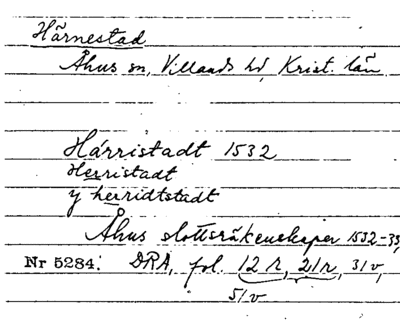 Härnestad
Åhus sn, Villands hd, Krist. län
Härristadt 1532
Herristadt
y herridtstadt
Åhus slottsräkenskaper 1532-33,
Nr 5284: DRA, fol. 12 r, 21 r, 31 v,
51 v